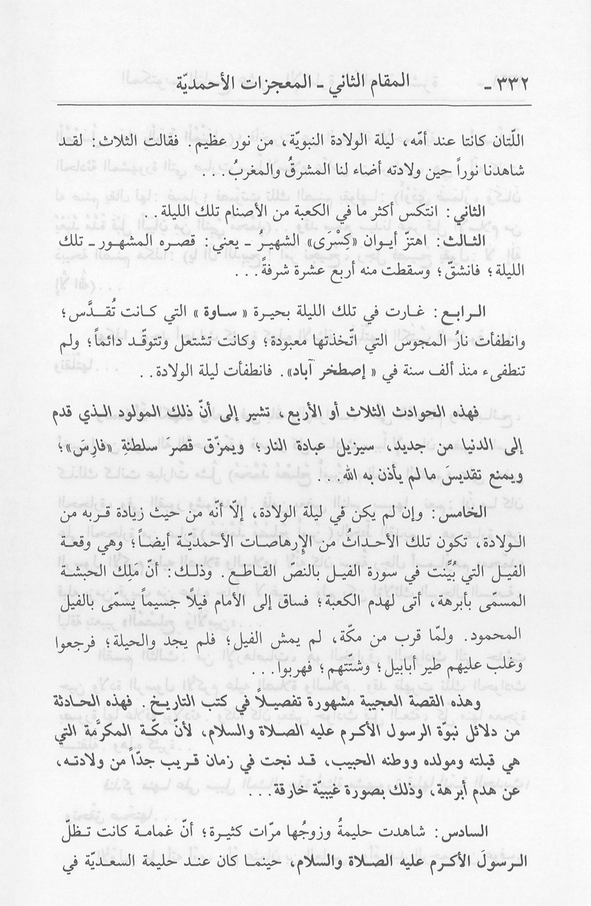 ٣٣٢ ـ المقام الثاني - المعجزات الأحمديّة
اللّتان كانتا عند أمّه، ليلة الولادة النبويّة، من نور عظيم. فقالت الثلاث: لقد
شاهدنا نوراً حين ولادته أضاء لنا المشرقُ والمغربُ...
الثاني: انتكس أكثر ما في الكعبة من الأصنام تلك الليلة..
الثالث: اهتزّ أيوان «كِسْرَى» الشهيرُ ـ يعني: قصره المشهور ـ تلك
الليلة؛ فانشقّ؛ وسقطت منه أربع عشرة شرفةً...
الرابع: غارت في تلك الليلة بحيرة «ساوة» التي كانت تُقدَّس؛
وانطفأت نارُ المجوس التي اتّخذتها معبودة؛ وكانت تشتعل وتتوقّد دائماً؛ ولم
تنطفىء منذ ألف سنة في «إصطخر آباد». فانطفأت ليلة الولادة..
فهذه الحوادث الثلاث أو الأربع، تشير إلى أنّ ذلك المولود الذي قدم
إلى الدنيا من جديد، سيزيل عبادة النار؛ ويمزّق قصر سلطنةِ «فارِسَ»؛
ويمنع تقديسَ ما لم يأذن به الله...
الخامس: وإن لم يكن في ليلة الولادة، إلّا أنّه من حيث زيادة قربه من
الولادة، تكون تلك الأحداثُ من الإرهاصات الأحمديّة أيضاً؛ وهي وقعة
الفيل التي بُيِّنت في سورة الفيل بالنصّ القاطع. وذلك: أنّ مَلِك الحبشة
المسمّى بأبرهة، أتى لهدم الكعبة؛ فساق إلى الأمام فيلًا جسيماً يسمّى بالفيل
المحمود. ولمّا قرب من مكّة، لم يمش الفيل؛ فلم يجد والحيلة؛ فرجعوا
وغلب عليهم طير أبابيل؛ وشتّتهم؛ فهربوا...
وهذه القصة العجيبة مشهورة تفصيلًا في كتب التاريخ. فهذه الحادثة
من دلائل نبوّة الرسول الأكرم عليه الصلاة والسلام، لأنّ مكّة المكرمّة التي
هي قبلته ومولده ووطنه الحبيب، قد نجت في زمان قريب جدّاً من ولادته،
عن هدم أبرهة، وذلك بصورة غيبيّة خارقة...
السادس: شاهدت حليمةُ وزوجُها مرّات كثيرة؛ أنّ غمامة كانت تظلّ
الرسولَ الأكرم عليه الصلاة والسلام، حينما كان عند حليمة السعديّة في